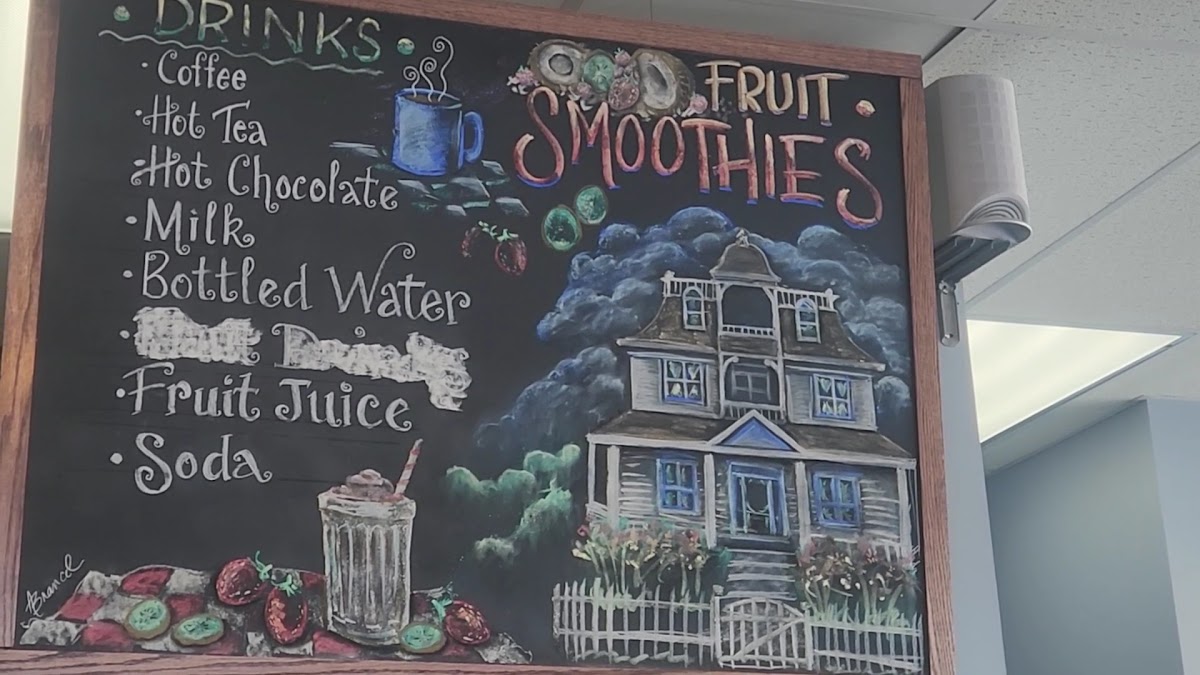 DRINKS
· Coffee
· Hot Tea
· Hot Chocolate
· Milk
· Bottled Water
· Fruit Juice
· Soda
FRUIT
SMOOTHIES
ABrancel